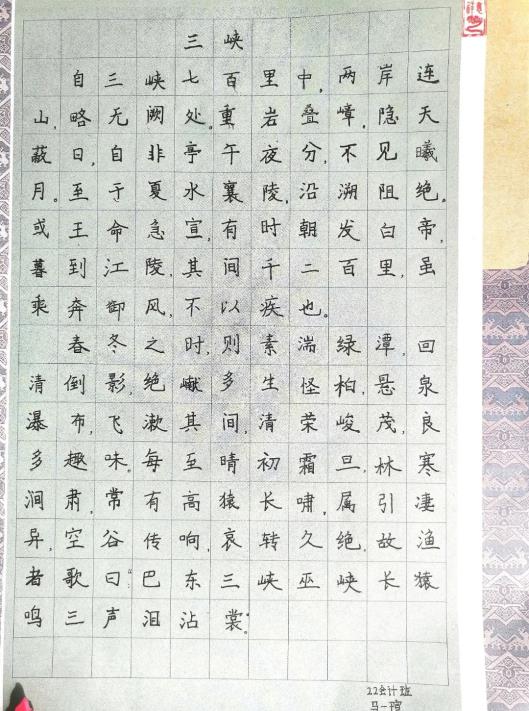 三峡
自三峡七百里中,两岸连
山,略无阙处。重岩叠嶂,隐天
蔽日,自非亭午夜分,不见曦
月。至于夏水襄陵,沿溯阻绝。
或王命急宣,有时朝发白帝,
暮到江陵,其间千二百里,虽
乘奔御风,不以疾也。
春冬之时,则素湍绿潭,回
清倒影,绝巘多生怪柏,悬泉
瀑布,飞漱其间,清荣峻茂,良
多趣味。每至晴初霜旦,林寒
涧肃,常有高猿长啸,属引凄
异,空谷传响,哀转久绝,故渔
者歌曰:“巴东三峡巫峡长猿
鸣三声泪沾裳。”
22会计班
马一